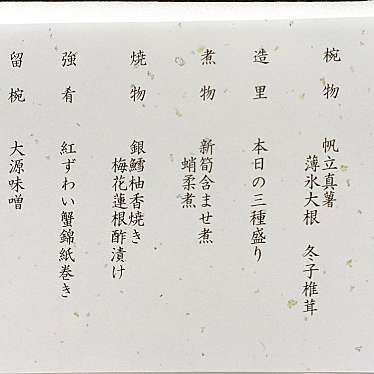 椀物
帆立真薯
薄氷大根 冬子椎茸
造里
本日の三種盛り
煮物
新筍含ませ煮
蛸柔煮
焼物
銀鱈柚香焼き
梅花蓮根酢漬け
強肴
紅ずわい蟹錦紙巻き
留椀
大源味噌